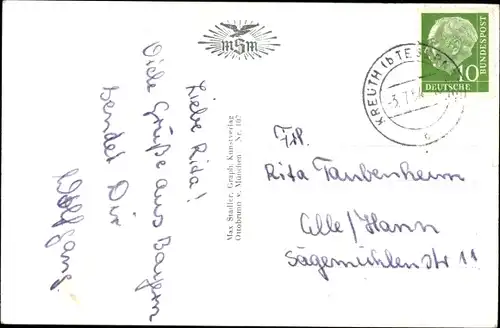 Liebe Rita!
Viele Grüße aus Bayern
sendet Dir
Wolfgang.
MSM
Max Stadler, Graph. Kunstverlag
Ottobrunn v. München Nr. 107
KREUTH (b TEGERNS
-3.7.5
c
10
DEUTSCHE
BUNDESPOST
Frl.
Rita Taubenheim
Celle/Hann
Sägemühlenstr 11